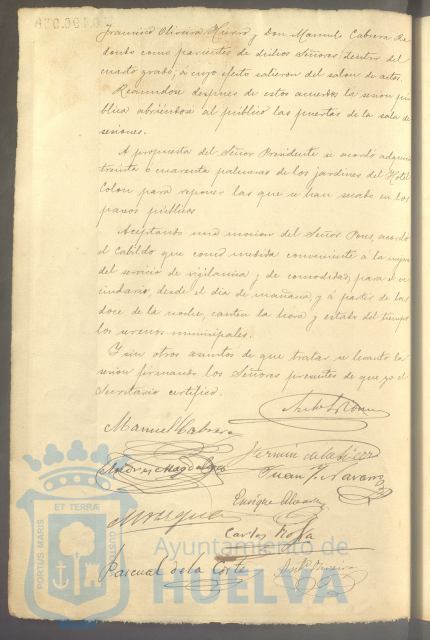 Francisco Oliveira Hierro y Don Manuel Cabrera Re
dondo como parientes de dichos Señores, dentro del
cuarto grado, a cuyo efecto salieron del salon de actos.
Reanundose despues de estos acuerdos la sesion pú
blica abriendose al público las puertas de la sala de
sesiones.
A propuesta del Señor Presidente se acordó adquirir
treinta o cuarenta palmeras de los jardines del Hotel
Colon para reponer las que se han secado en los
paseos públicos
Aceptando una mocion del Señor Pons, acordó
el Cabildo que como medida conveniente a la mejora
del servicio de vigilancia y de comodidad, para el ve
cindario, desde el dia de mañana, y a partir de las
doce de la noche, canten la hora y estado del tiempo
los serenos municipales.
Y sin otros asuntos de que tratar se levantó la
sesion firmando los Señores presentes de que yo el
Secretario certifico.
Manuel Cabrera
Juan J. Navarro
Enrique
Carlos Rosa
Pascual de la Corte
PORTUS MARIS ET TERRAE CUSTODIA
Ayuntamiento de
HUELVA